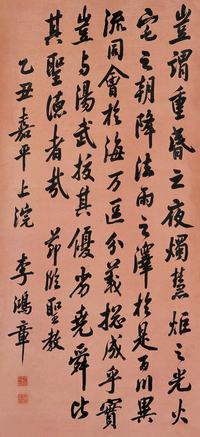 豈謂重昏之夜燭慧炬之光火
宅之朝降法雨之澤於是百川異
流同會於海万區分義揔成乎實
豈與湯武挍其優劣堯舜比
其聖德者哉 節臨聖教
乙丑嘉平上浣 李鴻章